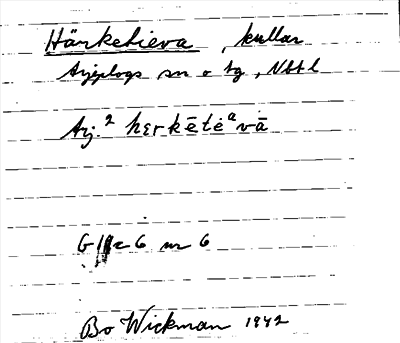 Härketieva, kullar
Arjeplogs sn o tg, Nbtl
Arj.² hɛrkētė^a vā
G 6 nr 6
Bo Wickman 1942